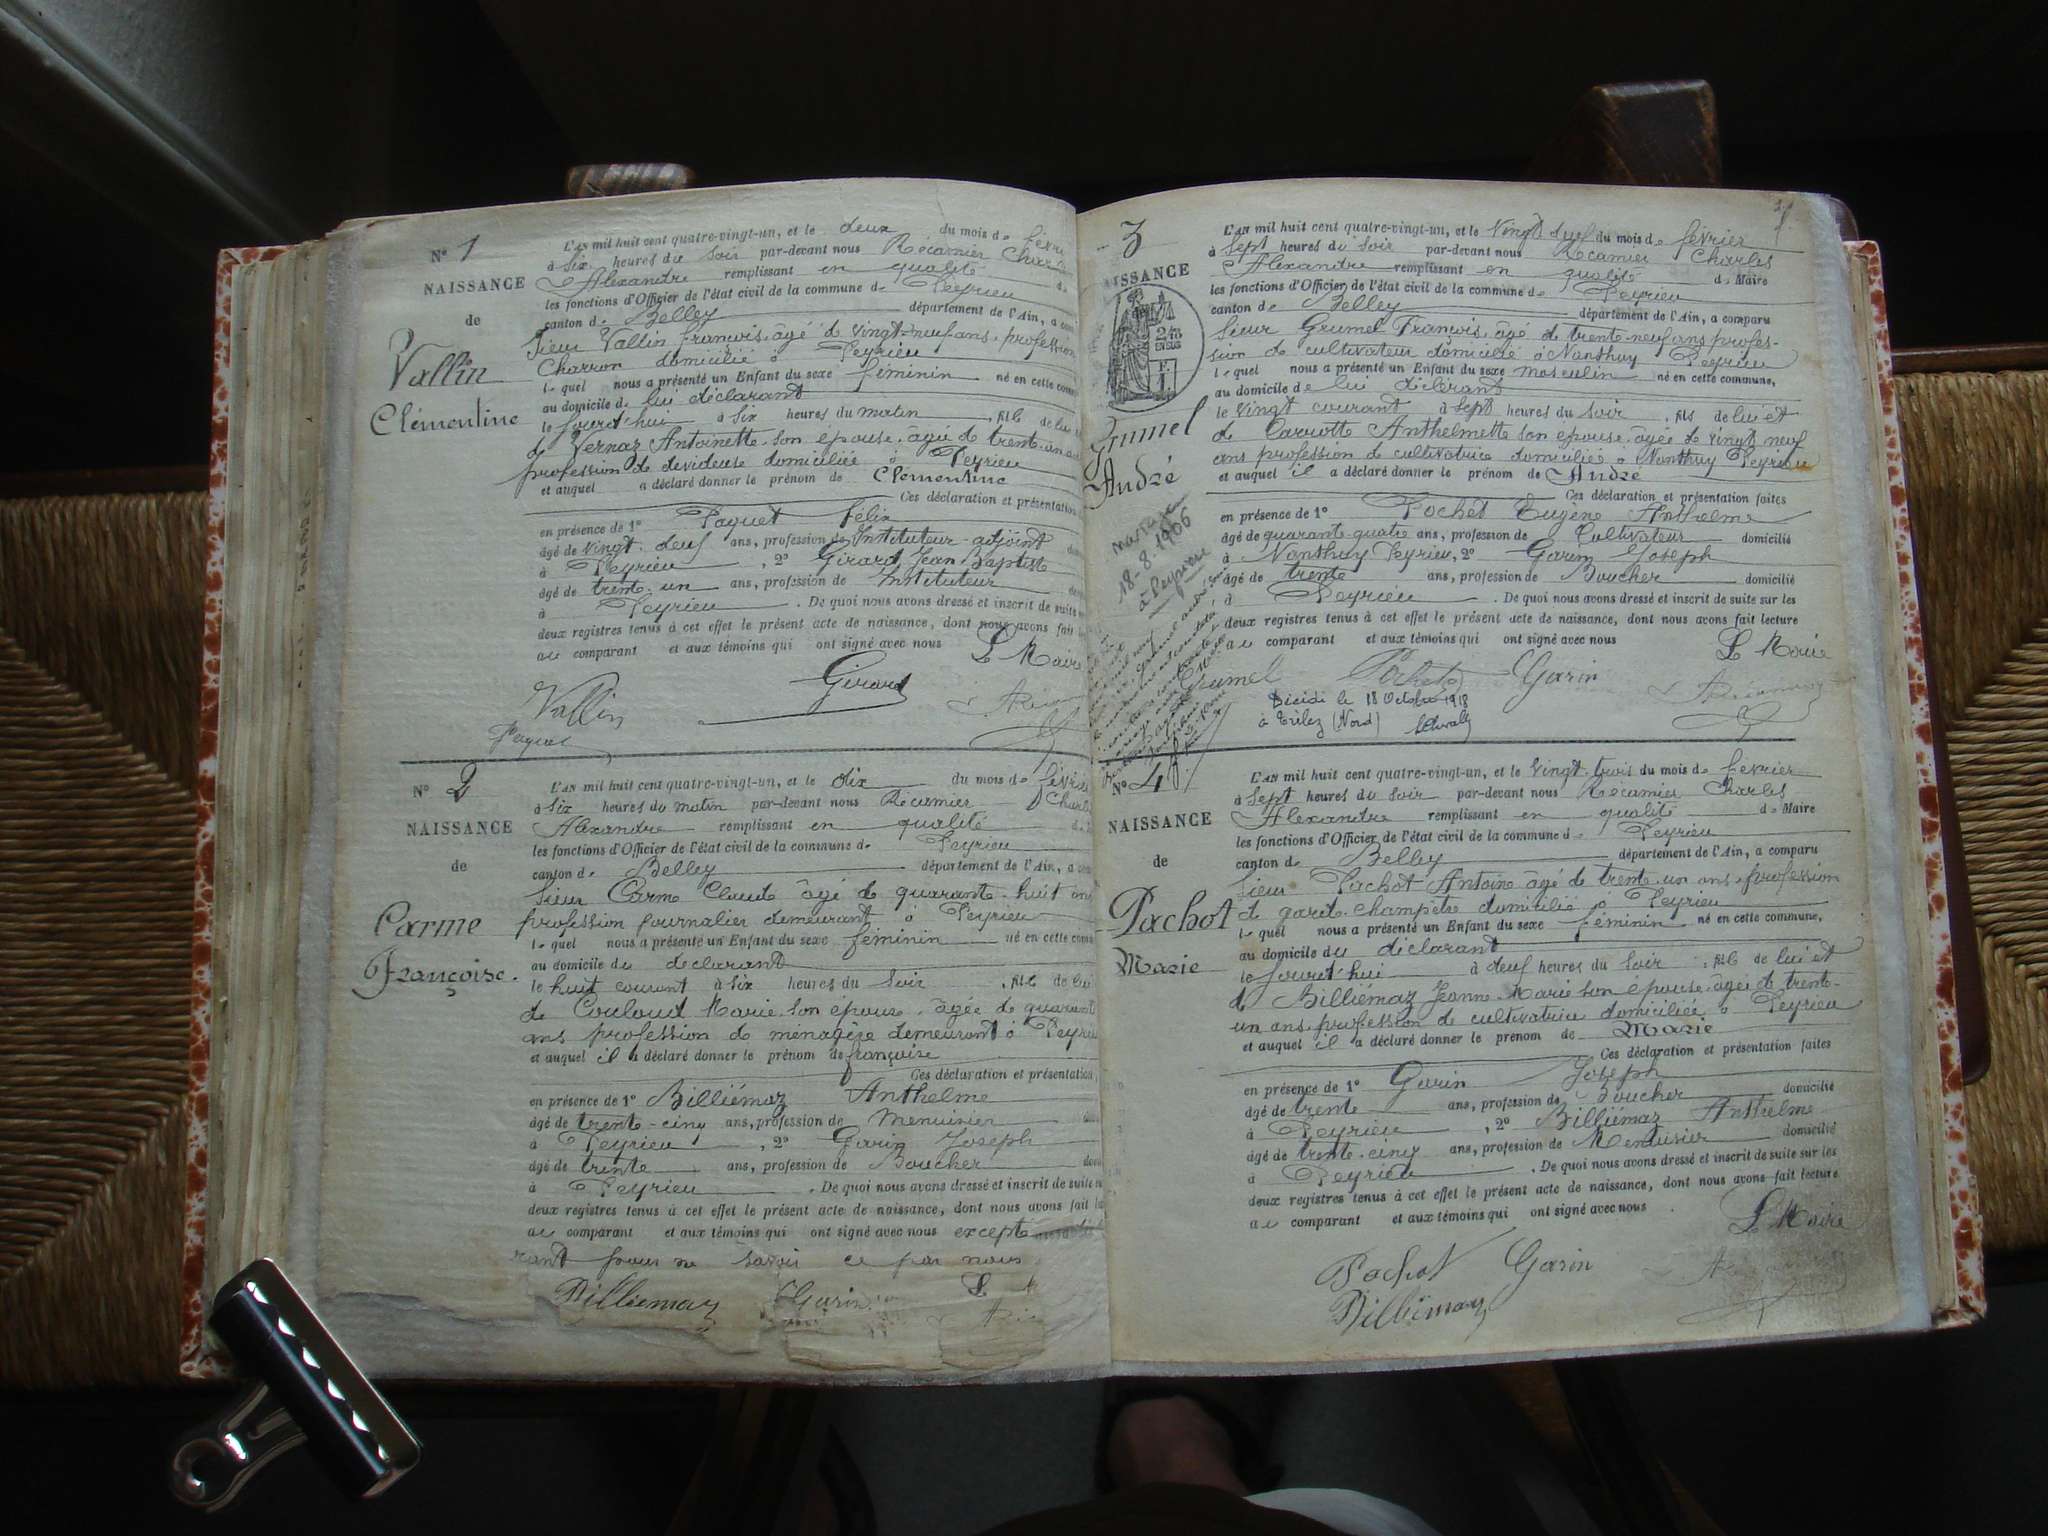 N° 1
NAISSANCE
de
Vallin
Clémentine
L'AN mil huit cent quatre-vingt-un, et le deux du mois de févri
à six heures du soir par-devant nous Récamier Charl
Alexandre remplissant en qualité de
les fonctions d'Officier de l'état civil de la commune de Peyrieu
canton de Belley département de l'Ain, a com
Sieur Vallin françois, âgé de vingt-neuf ans, profession
Charron domicilié à Peyrieu
lequel nous a présenté un Enfant du sexe féminin né en cette comm
au domicile de lui déclarant
le jourd'hui à six heures du matin, fille de lui
de Vernaz Antoinette son épouse, âgée de trente-un ans
profession de dévideuse domiciliée à Peyrieu
et auquel a déclaré donner le prénom de Clémentine
Ces déclaration et présentation
en présence de 1° Paquet félix
âgé de vingt-deuf ans, profession de Instituteur-adjoint
à Peyrieu, 2° Girard Jean Baptiste
âgé de trente-un ans, profession de Instituteur
à Peyrieu. De quoi nous avons dressé et inscrit de suite
deux registres tenus à cet effet le présent acte de naissance, dont nous avons fait
au comparant et aux témoins qui ont signé avec nous
Le Maire
Girard
Vallin
Paquet
N° 2
NAISSANCE
de
Carme
Françoise.
L'AN mil huit cent quatre-vingt-un, et le dix du mois de février
à six heures du matin par-devant nous Récamier Charles
Alexandre remplissant en qualité
les fonctions d'Officier de l'état civil de la commune de Peyrieu
canton de Belley département de l'Ain, a com
Sieur Carme Claude âgé de quarante-huit ans
profession journalier demeurant à Peyrieu
lequel nous a présenté un Enfant du sexe féminin né en cette comm
au domicile du déclarant
le huit courant à six heures du soir, fille de lui
de Couloud Marie son épouse, âgée de quarante
ans profession de ménagère demeurant à Peyrieu
et auquel il a déclaré donner le prénom de françoise
Ces déclaration et présentation
en présence de 1° Billiémaz Anthelme
âgé de trente-cinq ans, profession de Menuisier
à Peyrieu, 2° Garin Joseph
âgé de trente ans, profession de Boucher domi
à Peyrieu. De quoi nous avons dressé et inscrit de suite
deux registres tenus à cet effet le présent acte de naissance, dont nous avons fait
au comparant et aux témoins qui ont signé avec nous excepté
rant pour ne savoir ce par nous
Billiemaz Garin
3
NAISSANCE
2/10 EN SUS
Grumel
André
18-8-1906
à Peyrieu
L'AN mil huit cent quatre-vingt-un, et le vingt deuf du mois de février
à sept heures du soir par-devant nous Récamier Charles
Alexandre remplissant en qualité de Maire
les fonctions d'Officier de l'état civil de la commune de Peyrieu
canton de Belley département de l'Ain, a comparu
Sieur Grumel François, âgé de trente-neuf ans profes-
sion de cultivateur domicilié à Nanthuy Peyrieu
lequel nous a présenté un Enfant du sexe masculin né en cette commune,
au domicile de lui déclarant
le vingt courant à sept heures du soir, fils de lui et
de Carrotte Anthelmette son épouse, âgée de vingt neuf
ans profession de cultivatrice domiciliée à Nanthuy Peyrieu
et auquel il a déclaré donner le prénom de André
Ces déclaration et présentation faites
en présence de 1° Pochet Eugène Anthelme
âgé de quarante quatre ans, profession de Cultivateur domicilié
à Nanthuy Peyrieu, 2° Garin Joseph
âgé de trente ans, profession de Boucher domicilié
à Peyrieu. De quoi nous avons dressé et inscrit de suite sur les
deux registres tenus à cet effet le présent acte de naissance, dont nous avons fait lecture
au comparant et aux témoins qui ont signé avec nous
Le Maire
Grumel Pochet Garin
Décédé le 18 Octobre 1918
(Nord)
N° 4
NAISSANCE
de
Pachot
Marie
L'AN mil huit cent quatre-vingt-un, et le vingt-trois du mois de février
à sept heures du soir par-devant nous Récamier Charles
Alexandre remplissant en qualité de Maire
les fonctions d'Officier de l'état civil de la commune de Peyrieu
canton de Belley département de l'Ain, a comparu
Sieur Pachot Antoine âgé de trente-un ans, profession
de garde-champêtre domicilié à Peyrieu
lequel nous a présenté un Enfant du sexe féminin né en cette commune,
au domicile du déclarant
le jourd'hui à deuf heures du soir, fille de lui et
de Billiémaz Jeanne-Marie son épouse, âgée de trente-
un ans, profession de cultivatrice domiciliée à Peyrieu
et auquel il a déclaré donner le prénom de Marie
Ces déclaration et présentation faites
en présence de 1° Garin Joseph
âgé de trente ans, profession de Boucher domicilié
à Peyrieu, 2° Billiémaz Anthelme
âgé de trente-cinq ans, profession de Menuisier domicilié
à Peyrieu. De quoi nous avons dressé et inscrit de suite sur les
deux registres tenus à cet effet le présent acte de naissance, dont nous avons fait lecture
au comparant et aux témoins qui ont signé avec nous
Le Maire
Pachot Garin
Billiémaz